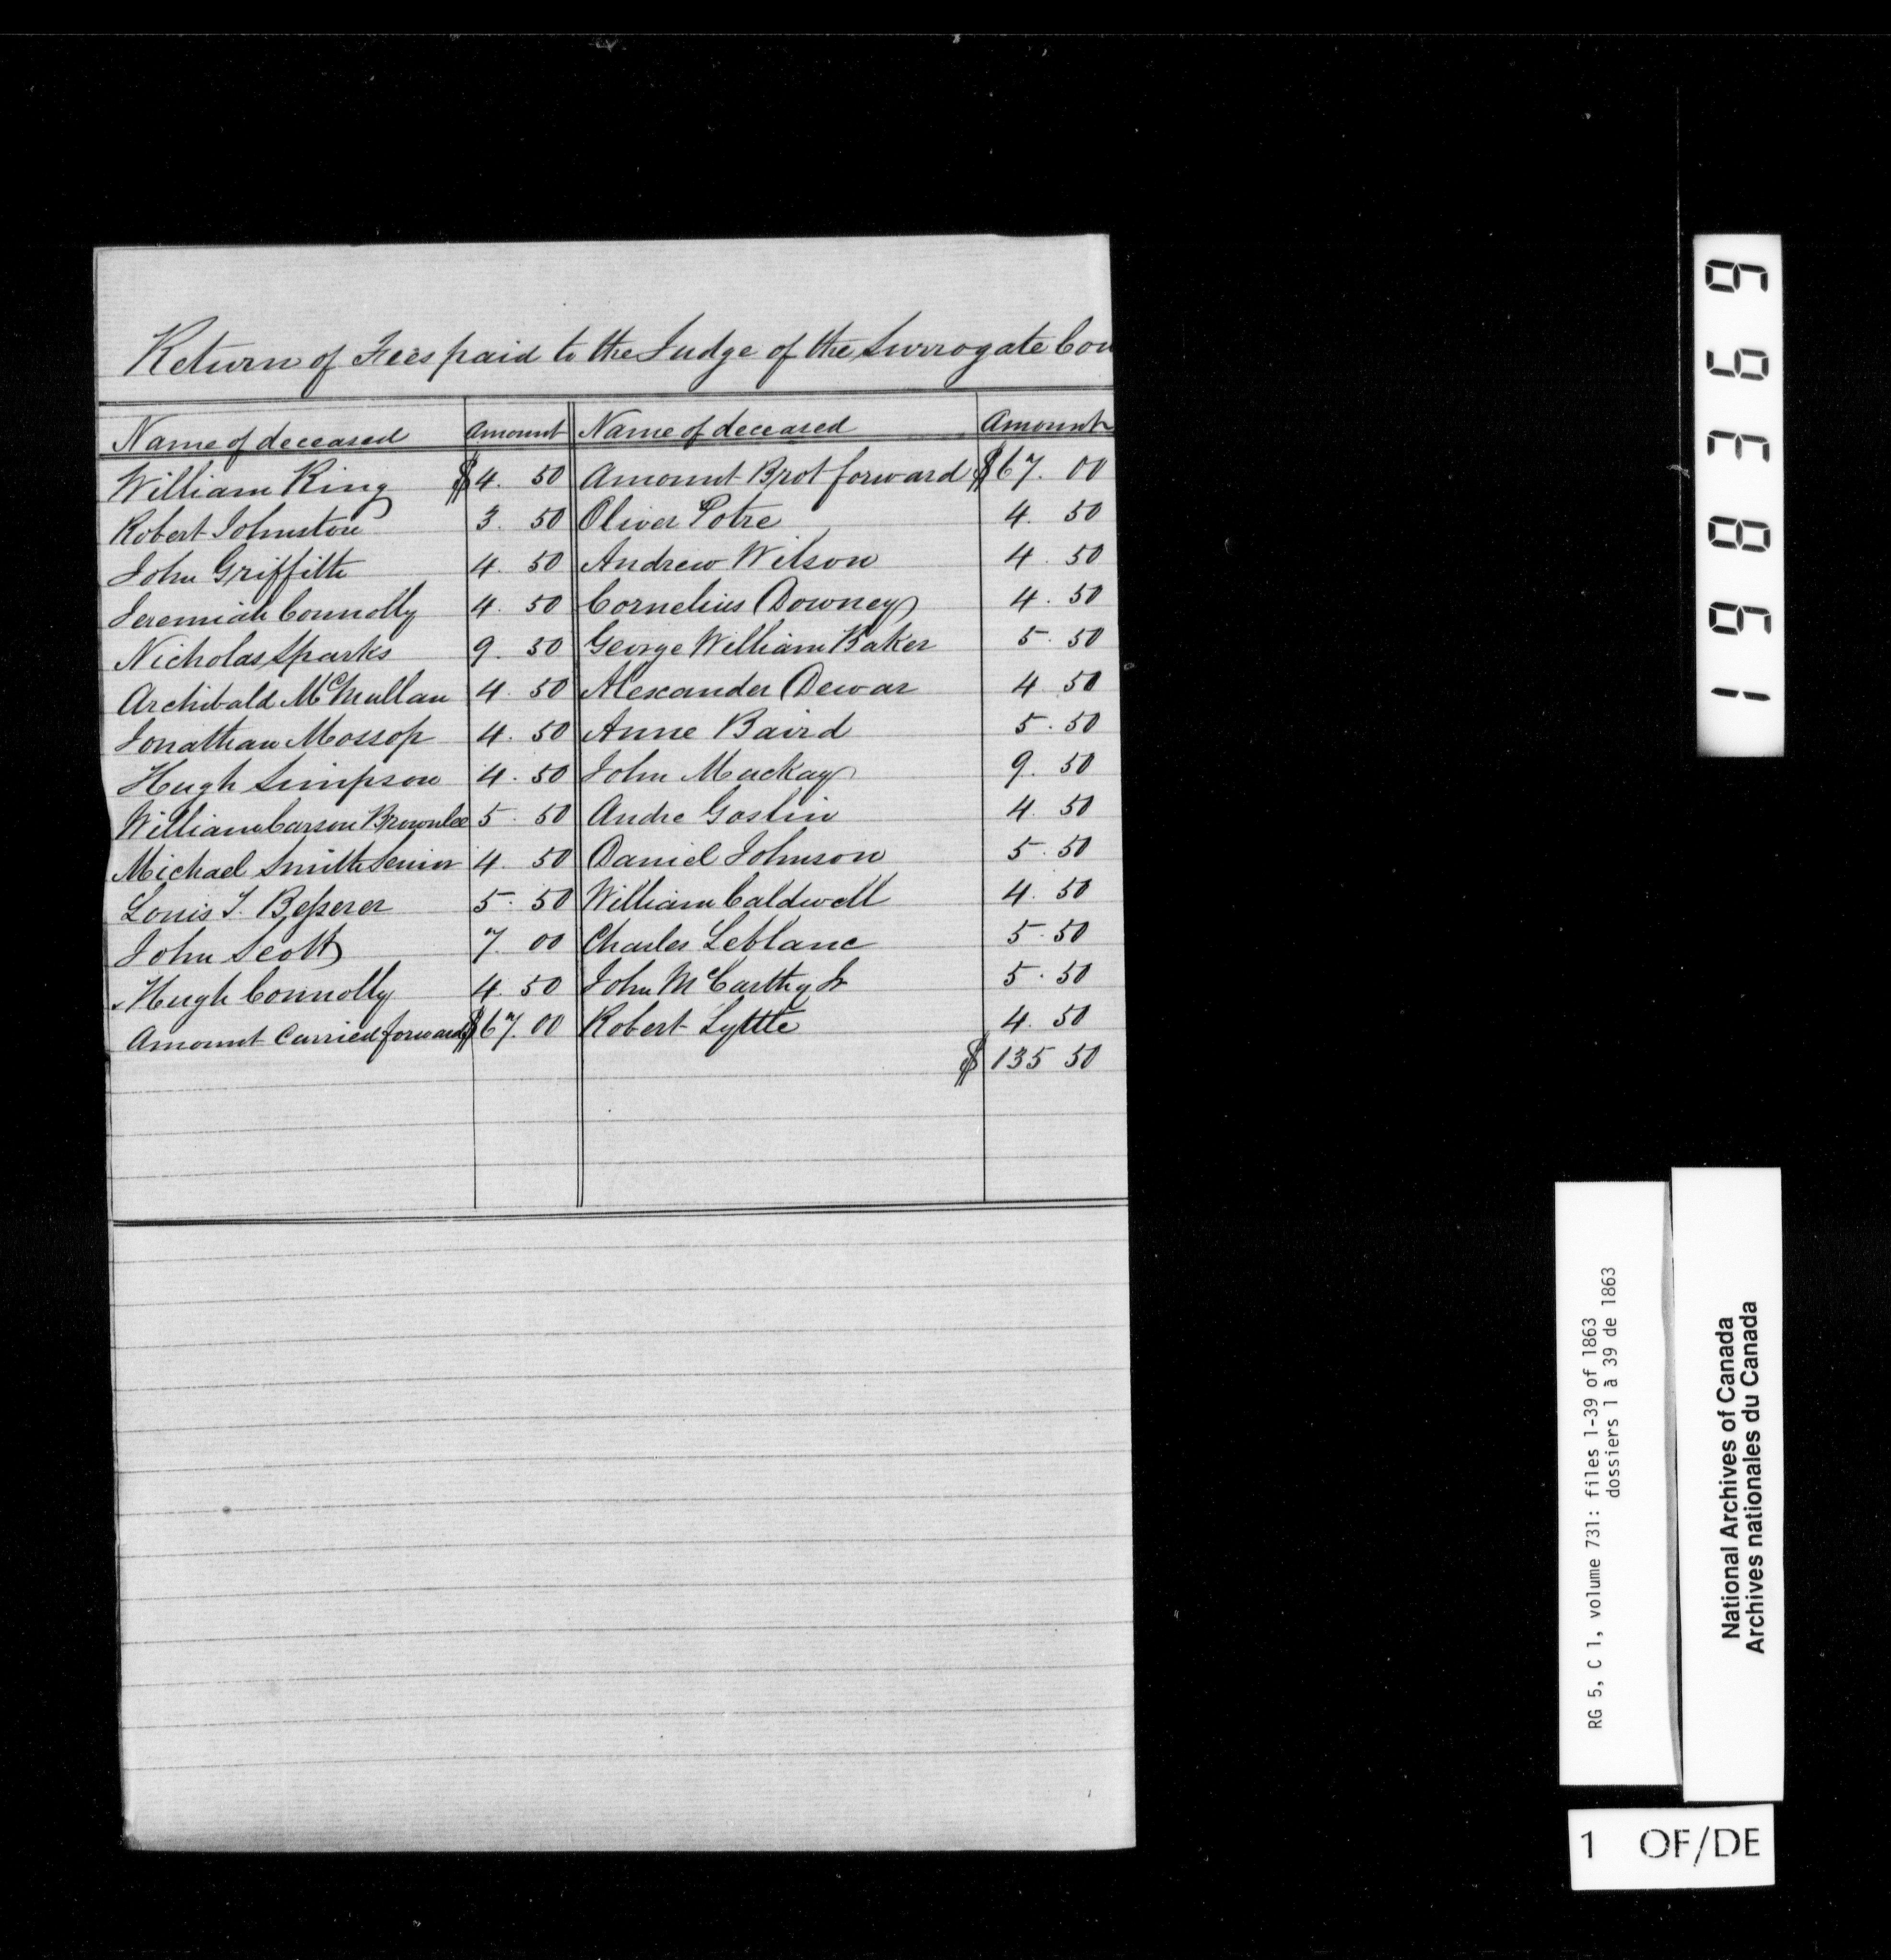 Return of Fees paid to the Judge of the Surrogate Cou
Name of deceased Amount Name of deceased Amount
William King $4. 50 Amount Brot forward $67. 00
Robert Johnston 3. 50 Oliver Potre 4. 50
John Griffith 4. 50 Andrew Wilson 4. 50
Jeremiah Connolly 4. 50 Cornelius Downey 4. 50
Nicholas Sparks 9. 50 George William Baker 5. 50
Archibald McMullan 4. 50 Alexander Dewar 4. 50
Jonathan Mossop 4. 50 Anne Baird 5. 50
Hugh Simpson 4. 50 John Mackay 9. 50
William Carson Brownlee 5. 50 Andre Goslin 4. 50
Michael Smith Senior 4. 50 Daniel Johnson 5. 50
Louis T. Besserer 5. 50 William Caldwell 4. 50
John Scott 7. 00 Charles Leblanc 5. 50
Hugh Connolly 4. 50 John McCarthy Jr 5. 50
Amount Carried forward $67. 00 Robert Lyttle 4. 50
$135 50
198369
RG 5, C 1, volume 731: files 1-39 of 1863
dossiers 1 à 39 de 1863
National Archives of Canada
Archives nationales du Canada
1 OF/DE